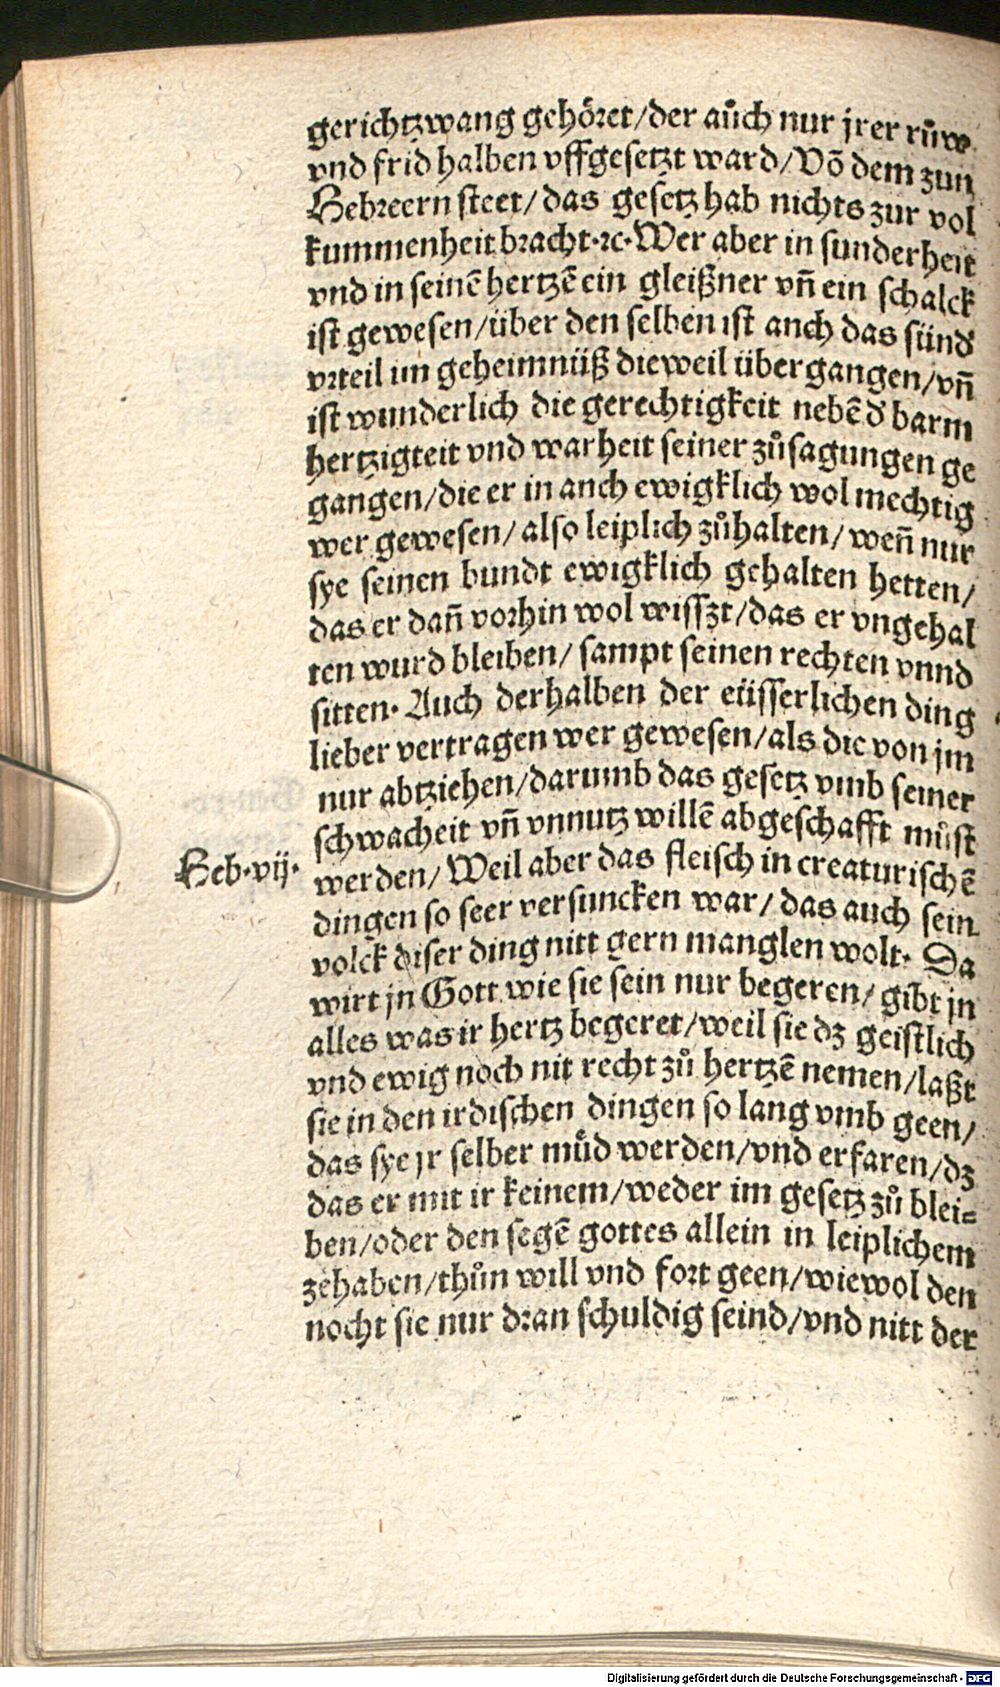 gerichtzwang gehöret/der auch nur jrer růw
vnd frid halben vffgesetzt ward/Võ dem zun
Hebreern steet/das gesetz hab nichts zur vol
kummenheit bracht.ꝛc.Wer aber in sunderheit
vnd in seinẽ hertzẽ ein gleißner vñ ein schalck
ist gewesen/über den selben ist auch das sünd
vrteil im geheimnüß dieweil übergangen/vñ
ist wunderlich die gerechtigkeit nebẽ d̕ barm
hertzigteit vnd warheit seiner zůsagungen ge
gangen/die er in auch ewigklich wol mechtig
wer gewesen/also leiplich zůhalten/weñ nur
sye seinen bundt ewigklich gehalten hetten/
das er dañ vorhin wol wisszt/das er vngehal
ten wurd bleiben/sampt seinen rechten vnnd
sitten. Auch derhalben der eüsserlichen ding
lieber vertragen wer gewesen/als die von jm
nur abtziehen/darumb das gesetz vmb seiner
schwacheit vñ vnnutz willẽ abgeschafft můst
Heb.vij.
werden/Weil aber das fleisch in creaturischẽ
dingen so seer versuncken war/das auch sein
volck diser ding nitt gern manglen wolt. Da
wirt jn Gott wie sie sein nur begeren/gibt jn
alles was ir hertz begeret/weil sie dz geistlich
vnd ewig noch nit recht zů hertzẽ nemen/laßt
sie in den irdischen dingen so lang vmb geen/
das sye jr selber můd werden/vnd erfaren/dz
das er mit ir keinem/weder im gesetz zů blei=
ben/oder den segẽ gottes allein in leiplichem
zehaben/thůn will vnd fort geen/wiewol den
nocht sie nur dran schuldig seind/vnd nitt der
Digitalisierung gefördert durch die Deutsche Forschungsgemeinschaft - DFG